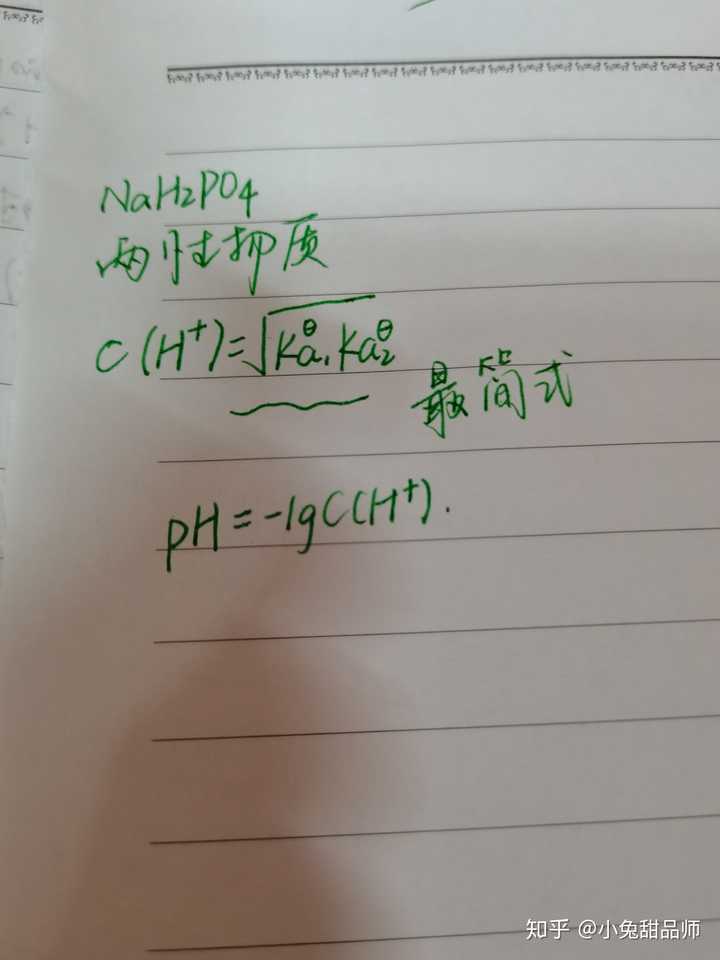 NaH₂PO₄
两性物质
C(H⁺)=√Ka₁^θ·Ka₂^θ
最简式
pH=-lgC(H⁺).
知乎 @小兔甜品师